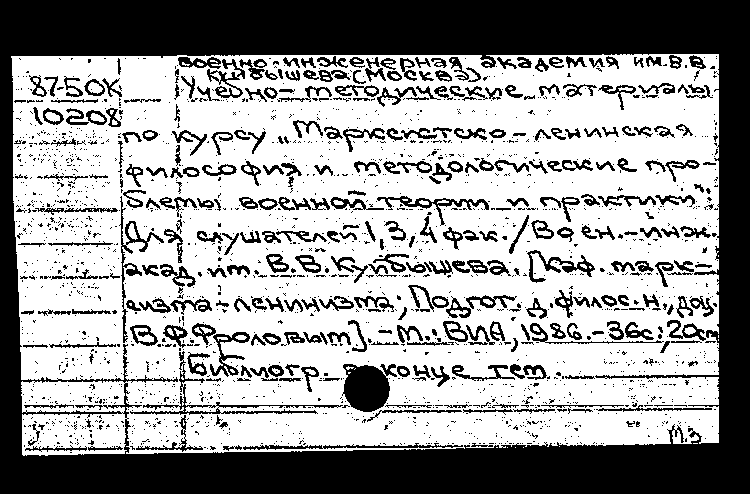 Военно-инженерная академия им. В.В.
Куйбышева (Москва).
87-50К Учебно-методические материалы
10208
по курсу „Марксистско-ленинская
философия и методологические про-
блемы военной теории и практики":
Для слушателей 1, 3, 4 фак. / Воен.-инж.
акад. им. В.В. Куйбышева. [Каф. марк-
сизма-ленинизма; Подгот. д. филос. н., доц.
В.Ф. Фроловым]. - М.: ВИА, 1986. - 36с; 20см
Библиогр. в конце тем.